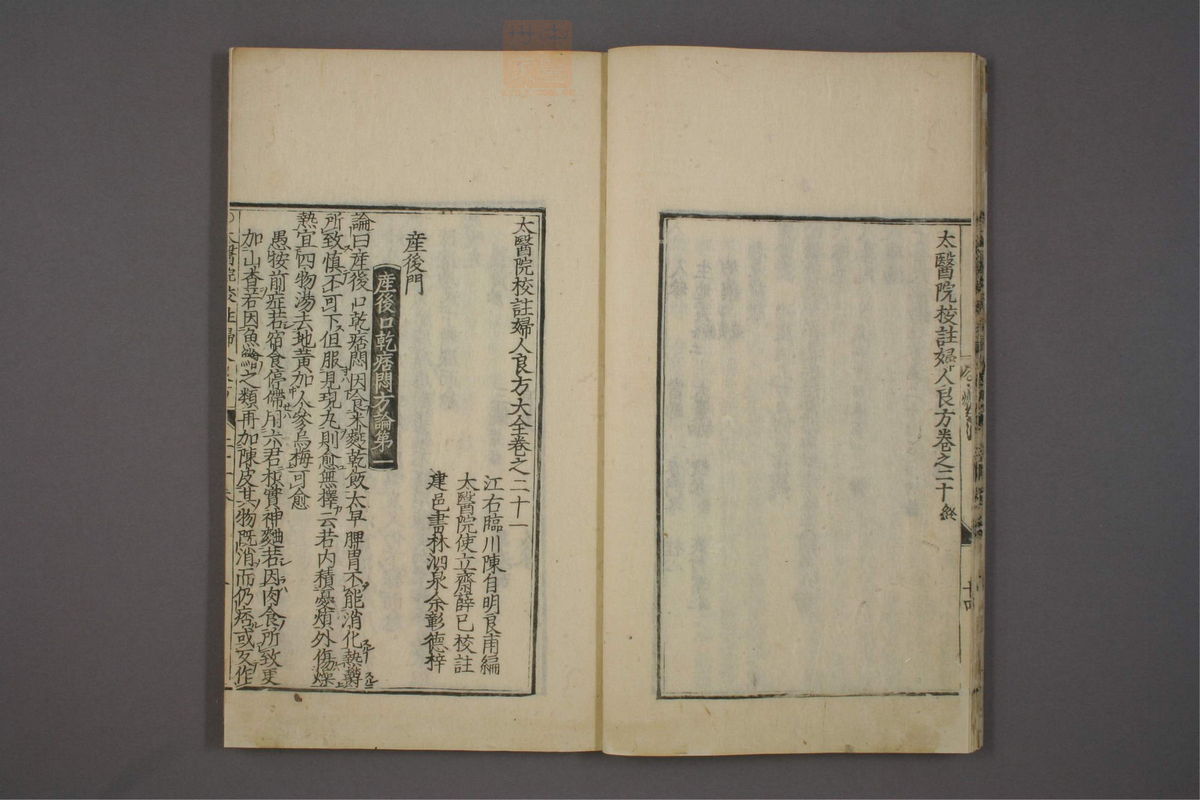 太醫院校註婦人良方卷之二十終
十四
太醫院校註婦人良方大全卷之二十一
江右臨川陳自明良甫編
太醫院使立齋薛已校註
建邑書林泗泉余彰德梓
産後門
産後口乾痞悶方論第一
論曰産後口乾痞悶因食来麫乾飯太早脾胃不能消化熱欝
所致慎不可下但服見現丸則愈無擇云若内積憂煩外傷燥
熱宜四物湯去地黄加人參烏梅可愈
愚按前症若宿食停滯用六君枳實神麯若因肉食所致更
加山査若因魚鱠之類再加陳皮其物既消而仍痞或反作